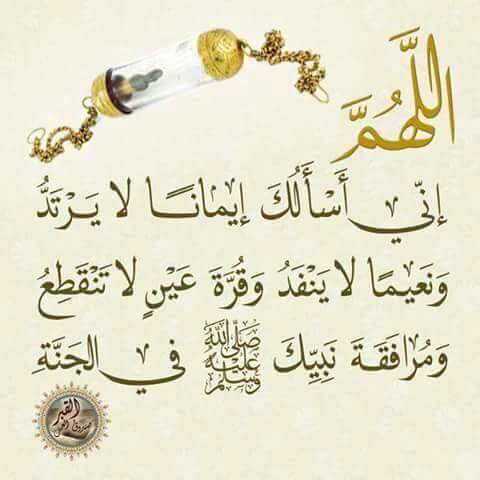 اللَّهُمَّ
إِنّي أَسْأَلُكَ إِيمَانًا لا يَرْتَدُّ
وَنَعِيمًا لا يَنْفَدُ وَقُرَّةَ عَيْنٍ لا تَنْقَطِعُ
وَمُرافَقَةَ نَبِيِّكَ صَلَّى اللهُ عَلَيْهِ وَسَلَّمَ في الجَنَّةِ
القبر
صندوق العمل